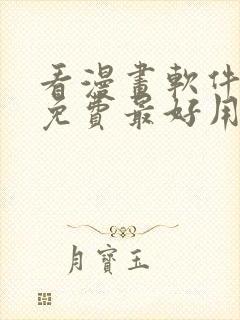 看漫畫軟件
免費最好用
月寶玉